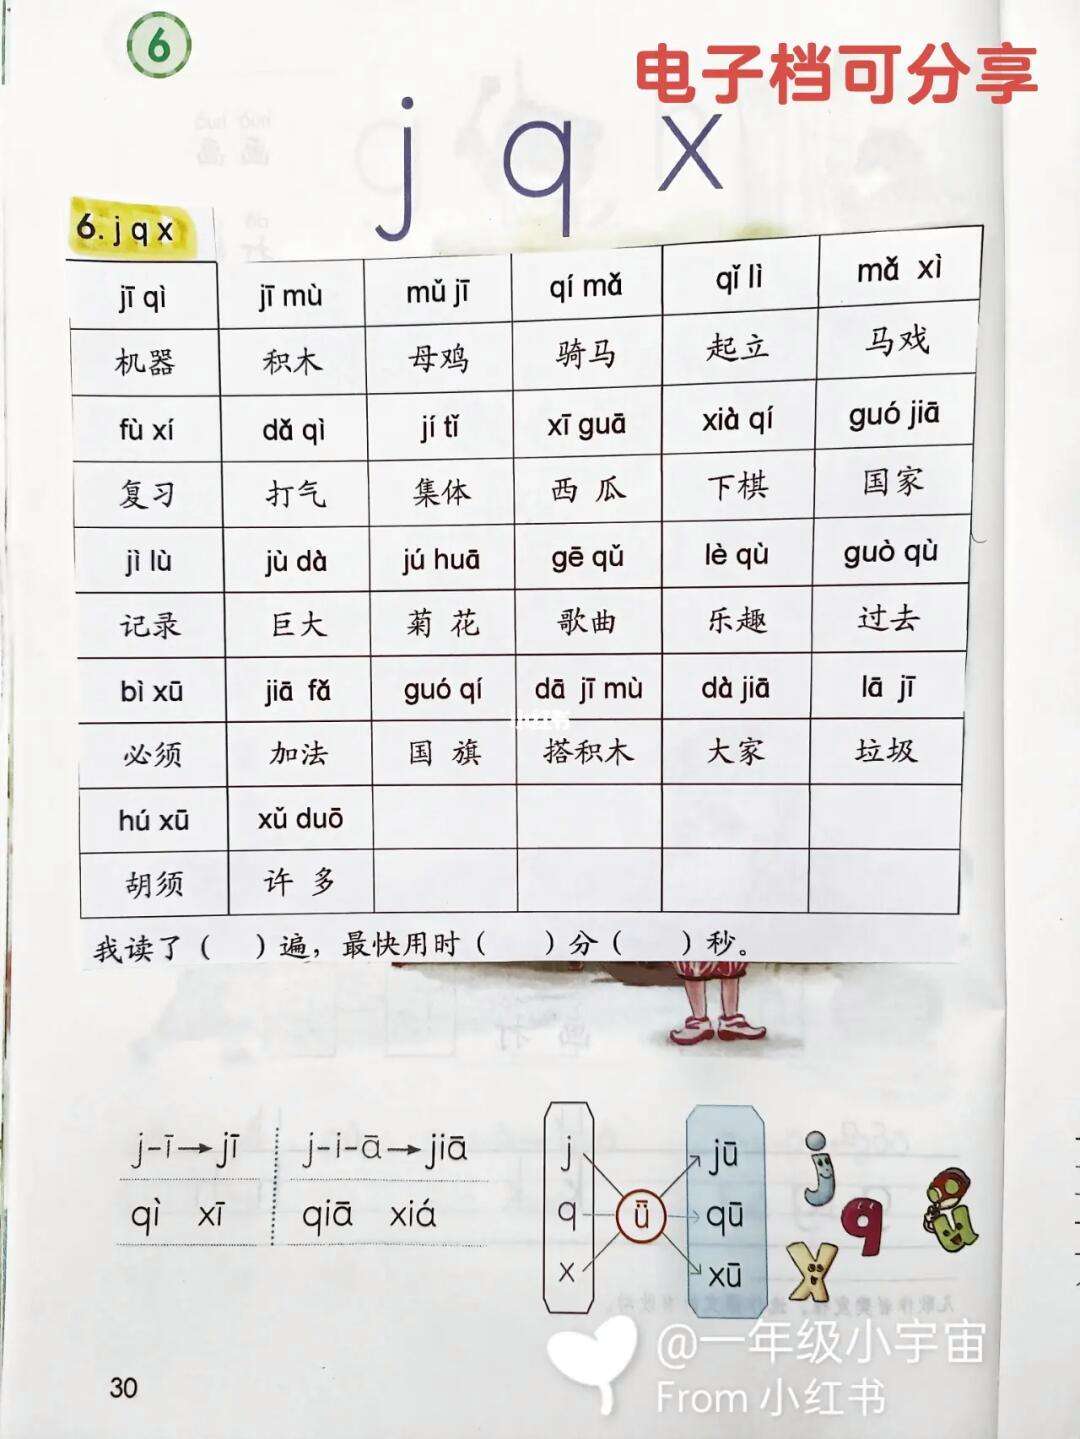 6
电子档可分享
j q x
6. j q x
jī qì jī mù mǔ jī qí mǎ qǐ lì mǎ xì
机器 积木 母鸡 骑马 起立 马戏
fù xí dǎ qì jí tǐ xī guā xià qí guó jiā
复习 打气 集体 西 瓜 下棋 国家
jì lù jù dà jú huā gē qǔ lè qù guò qù
记录 巨大 菊 花 歌曲 乐趣 过去
bì xū jiā fǎ guó qí dā jī mù dà jiā lā jī
必须 加法 国 旗 搭积木 大家 垃圾
hú xū xǔ duō
胡须 许 多
我读了（ ）遍，最快用时（ ）分（ ）秒。
j-ī→jī j-i-ā→jiā
qì xī qiā xiá
j jū
q ǖ qū
x xū
j
q
x
ü
@一年级小宇宙
From 小红书
30
小红书